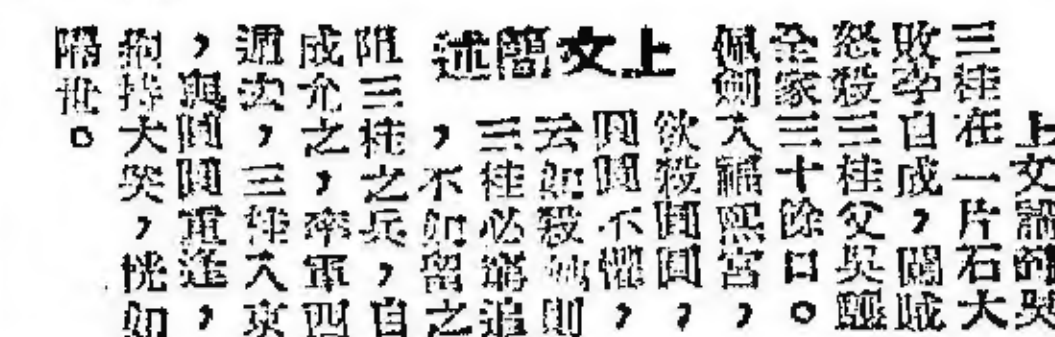 上文簡述
上文講到吳
三桂在一片石大
敗李自成,闖賊
怒殺三桂父吳驤
全家三十餘口。
佩劍入福熙宮,
欲殺圓圓,
圓圓不懼,
云如殺則
三桂必窮追
,不如留之
阻三桂之兵,自
成允之,率軍西
遁去,三桂入京
,與圓圓重逢,
抱持大哭,恍如
隔世。